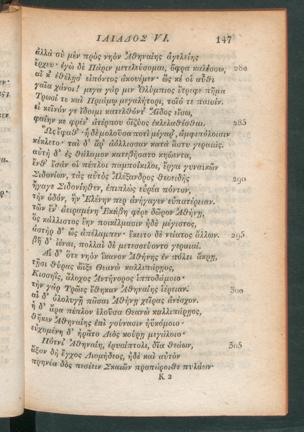 ΙΛΙΑΔΟΣ VI. 147
ἀλλὰ σὺ μὲν πρὸς νηὸν Ἀθηναίης ἀγελείης
ἔρχευ· ἐγὼ δὲ Πάριν μετελεύσομαι, ὄφρα καλέσσω, 280
αἴ κ' ἐθέλῃσ' εἰπόντος ἀκουέμεν· ὥς κέ οἱ αὖθι
γαῖα χάνοι! μέγα γάρ μιν Ὀλύμπιος ἔτρεφε πῆμα
Τρωσί τε καὶ Πριάμῳ μεγαλήτορι, τοῖό τε παισίν.
εἰ κεῖνόν γε ἴδοιμι κατελθόντ' Ἄϊδος εἴσω,
φαίην κε φρέν' ἀτέρπου ὀϊζύος ἐκλελαθέσθαι. 285
Ὣς ἔφαθ'· ἡ δὲ μολοῦσα ποτὶ μέγαρ', ἀμφιπόλοισιν
κέκλετο· ταὶ δ' ἄρ' ἀόλλισσαν κατὰ ἄστυ γεραιάς.
αὐτὴ δ' ἐς θάλαμον κατεβήσετο κηώεντα,
ἔνθ' ἔσαν οἱ πέπλοι παμποίκιλοι, ἔργα γυναικῶν
Σιδονίων, τὰς αὐτὸς Ἀλέξανδρος θεοειδὴς 290
ἤγαγε Σιδονίηθεν, ἐπιπλὼς εὐρέα πόντον,
τὴν ὁδὸν, ἣν Ἑλένην περ ἀνήγαγεν εὐπατέρειαν.
τῶν ἕν' ἀειραμένη Ἑκάβη φέρε δῶρον Ἀθήνῃ,
ὃς κάλλιστος ἔην ποικίλμασιν ἠδὲ μέγιστος,
ἀστὴρ δ' ὣς ἀπέλαμπεν· ἔκειτο δὲ νείατος ἄλλων. 295
βῆ δ' ἰέναι, πολλαὶ δὲ μετεσσεύοντο γεραιαί.
Αἱ δ' ὅτε νηὸν ἵκανον Ἀθήνης ἐν πόλει ἄκρῃ,
τῇσι θύρας ὤϊξε Θεανὼ καλλιπάρῃος,
Κισσηῒς, ἄλοχος Ἀντήνορος ἱπποδάμοιο·
τὴν γὰρ Τρῶες ἔθηκαν Ἀθηναίης ἱέρειαν. 300
αἱ δ' ὀλολυγῇ πᾶσαι Ἀθήνῃ χεῖρας ἀνέσχον.
ἡ δ' ἄρα πέπλον ἑλοῦσα Θεανὼ καλλιπάρῃος,
θῆκεν Ἀθηναίης ἐπὶ γούνασιν ἠϋκόμοιο·
εὐχομένη δ' ἠρᾶτο Διὸς κούρῃ μεγάλοιο·
Πότνι' Ἀθηναίη, ἐρυσίπτολι, δῖα θεάων, 305
ἆξον δὴ ἔγχος Διομήδεος, ἠδὲ καὶ αὐτὸν
πρηνέα δὸς πεσέειν Σκαιῶν προπάροιθε πυλάων·
K 2